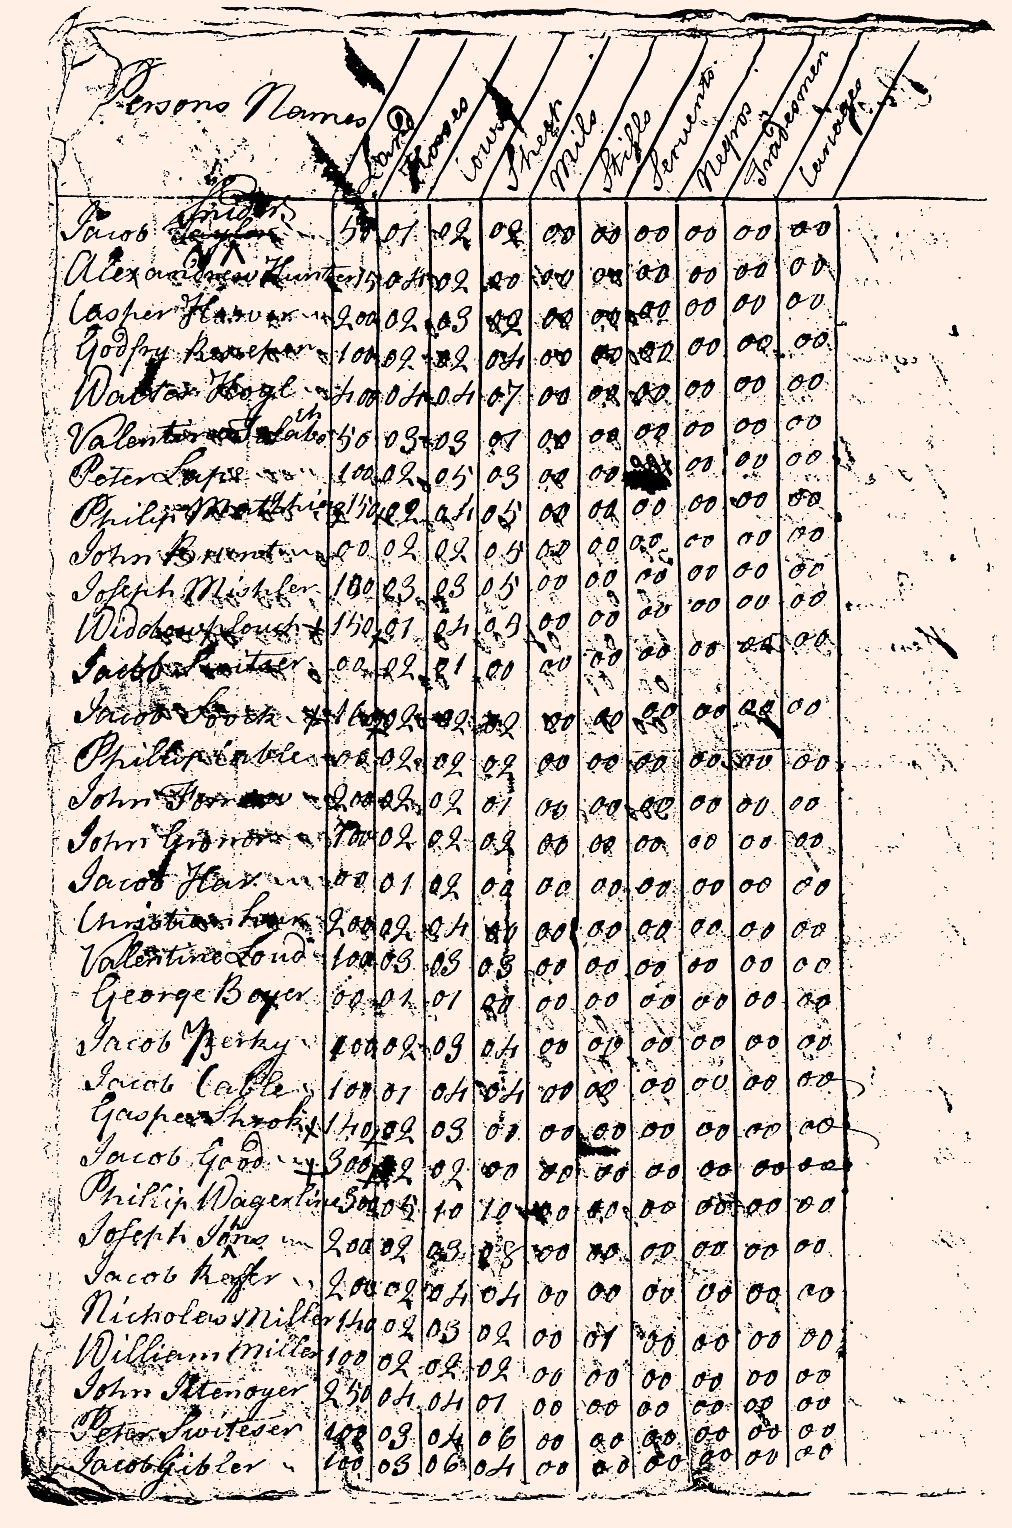 Persons Names Land Horses Cows Sheep Mils Stills Servents Negros Tradesmen Carriages
Jacob Snider 50 01 02 02 00 00 00 00 00 00
Alexandrew Hunter 04 02 00 00 00 00 00 00 00
Casper 200 02 03 02 00 00 00 00 00 00
Godfry 100 02 02 04 00 00 00 00 00 00
Walter Hogl 400 04 04 07 00 00 00 00 00 00
Valentine 50 03 03 01 00 00 00 00 00 00
Peter Lape 100 02 05 03 00 00 00 00 00 00
Philip 02 04 05 00 00 00 00 00 00
John 00 02 02 05 00 00 00 00 00 00
Joseph Mishler 100 03 03 05 00 00 00 00 00 00
Widdow Louch 150 01 04 05 00 00 00 00 00 00
Jacob Switser 00 02 01 00 00 00 00 00 00 00
Jacob 02 02 02 00 00 00 00 00 00
Phillip Cable 00 02 02 02 00 00 00 00 00 00
John 200 02 02 01 00 00 00 00 00 00
John 100 02 02 02 00 00 00 00 00 00
Jacob 00 01 02 00 00 00 00 00 00 00
Christian 200 02 04 00 00 00 00 00 00 00
Valentine Loud 100 03 03 03 00 00 00 00 00 00
George Boyer 00 01 01 00 00 00 00 00 00 00
Jacob Berky 100 02 03 04 00 00 00 00 00 00
Jacob Cable 100 01 04 04 00 00 00 00 00 00
Gasper Shrok 140 02 03 01 00 00 00 00 00 00
Jacob Good 300 02 02 00 00 00 00 00 00 00
Phillip Wagerline 300 05 10 10 00 00 00 00 00 00
Joseph Johns 200 02 03 08 00 00 00 00 00 00
Jacob 200 02 04 04 00 00 00 00 00 00
Nicholas Miller 140 02 03 02 00 01 00 00 00 00
William Miller 100 02 02 02 00 00 00 00 00 00
John Iltenoyer 250 04 04 01 00 00 00 00 00 00
Peter Switeser 100 03 04 06 00 00 00 00 00 00
Jacob Gibler 100 03 06 04 00 00 00 00 00 00